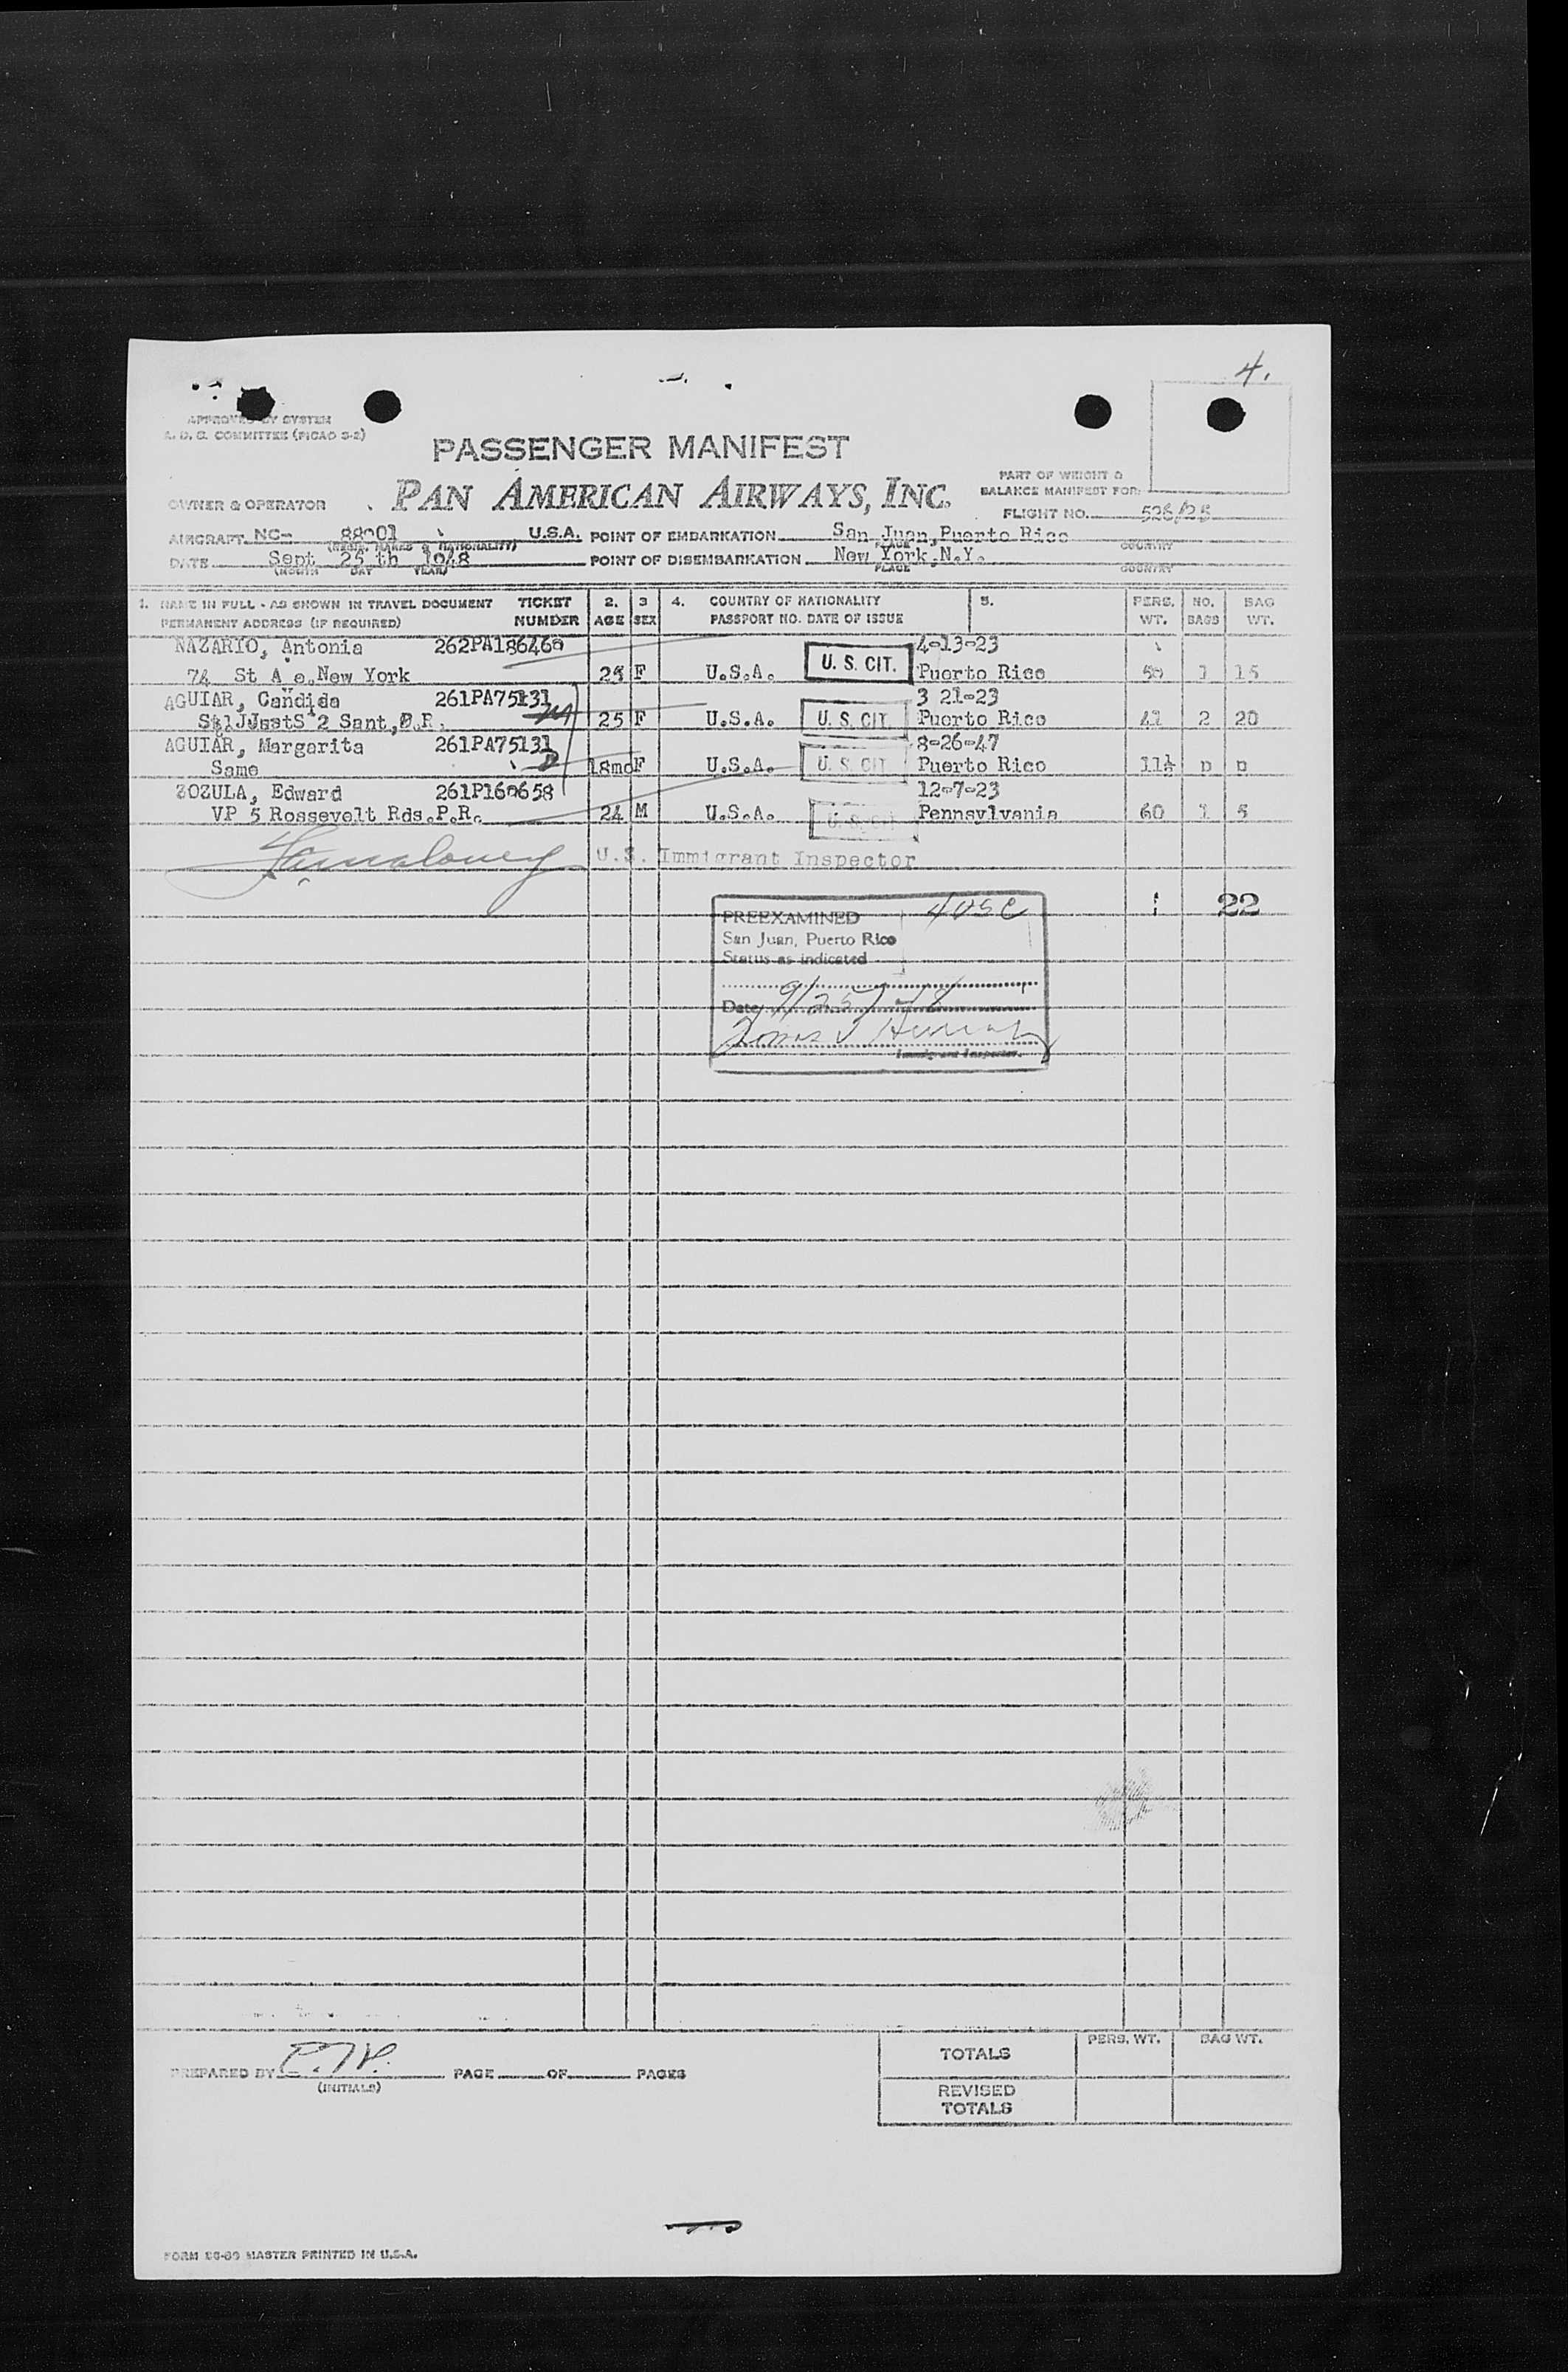 4.
APPROVED BY SYSTEM
A. D. C. COMMITTEE (PICAO S-2)
PASSENGER MANIFEST
PART OF WEIGHT &
BALANCE MANIFEST FOR:
OWNER & OPERATOR PAN AMERICAN AIRWAYS, INC.
FLIGHT NO. 526/25
AIRCRAFT NC- 88901 U.S.A. POINT OF EMBARKATION San Juan, Puerto Rico
(REGIS. MARKS & NATIONALITY) PLACE COUNTRY
DATE Sept 25 th 1948 POINT OF DISEMBARKATION New York, N.Y.
(MONTH DAY YEAR) PLACE COUNTRY
1. NAME IN FULL - AS SHOWN IN TRAVEL DOCUMENT TICKET 2. 3 4. COUNTRY OF NATIONALITY 5. PERS. NO. BAG
PERMANENT ADDRESS (IF REQUIRED) NUMBER AGE SEX PASSPORT NO. DATE OF ISSUE WT. BAGS WT.
NAZARIO, Antonia 262PA186460 4-13-23
74 St A e, New York 25 F U.S.A. U. S. CIT. Puerto Rico 50 1 15
AGUIAR, Candida 261PA75131 3 21-23
2 Sant, P.R. 25 F U.S.A. U. S. CIT. Puerto Rico 41 2 20
AGUIAR, Margarita 261PA75131 8-26-47
Same 18mo F U.S.A. U. S. CIT Puerto Rico 11½ 0 0
ZOZULA, Edward 261P160658 12-7-23
VP 5 Rossevelt Rds. P.R. 24 M U.S.A. U. S. CIT Pennsylvania 60 1 5
U.S. Immigrant Inspector
22
PREEXAMINED 405C
San Juan, Puerto Rico
Status as indicated
Date 9/25/48
Immigrant Inspector.
PREPARED BY PAGE OF PAGES
(INITIALS)
PERS. WT. BAG WT.
TOTALS
REVISED
TOTALS
FORM 86-60 MASTER PRINTED IN U.S.A.